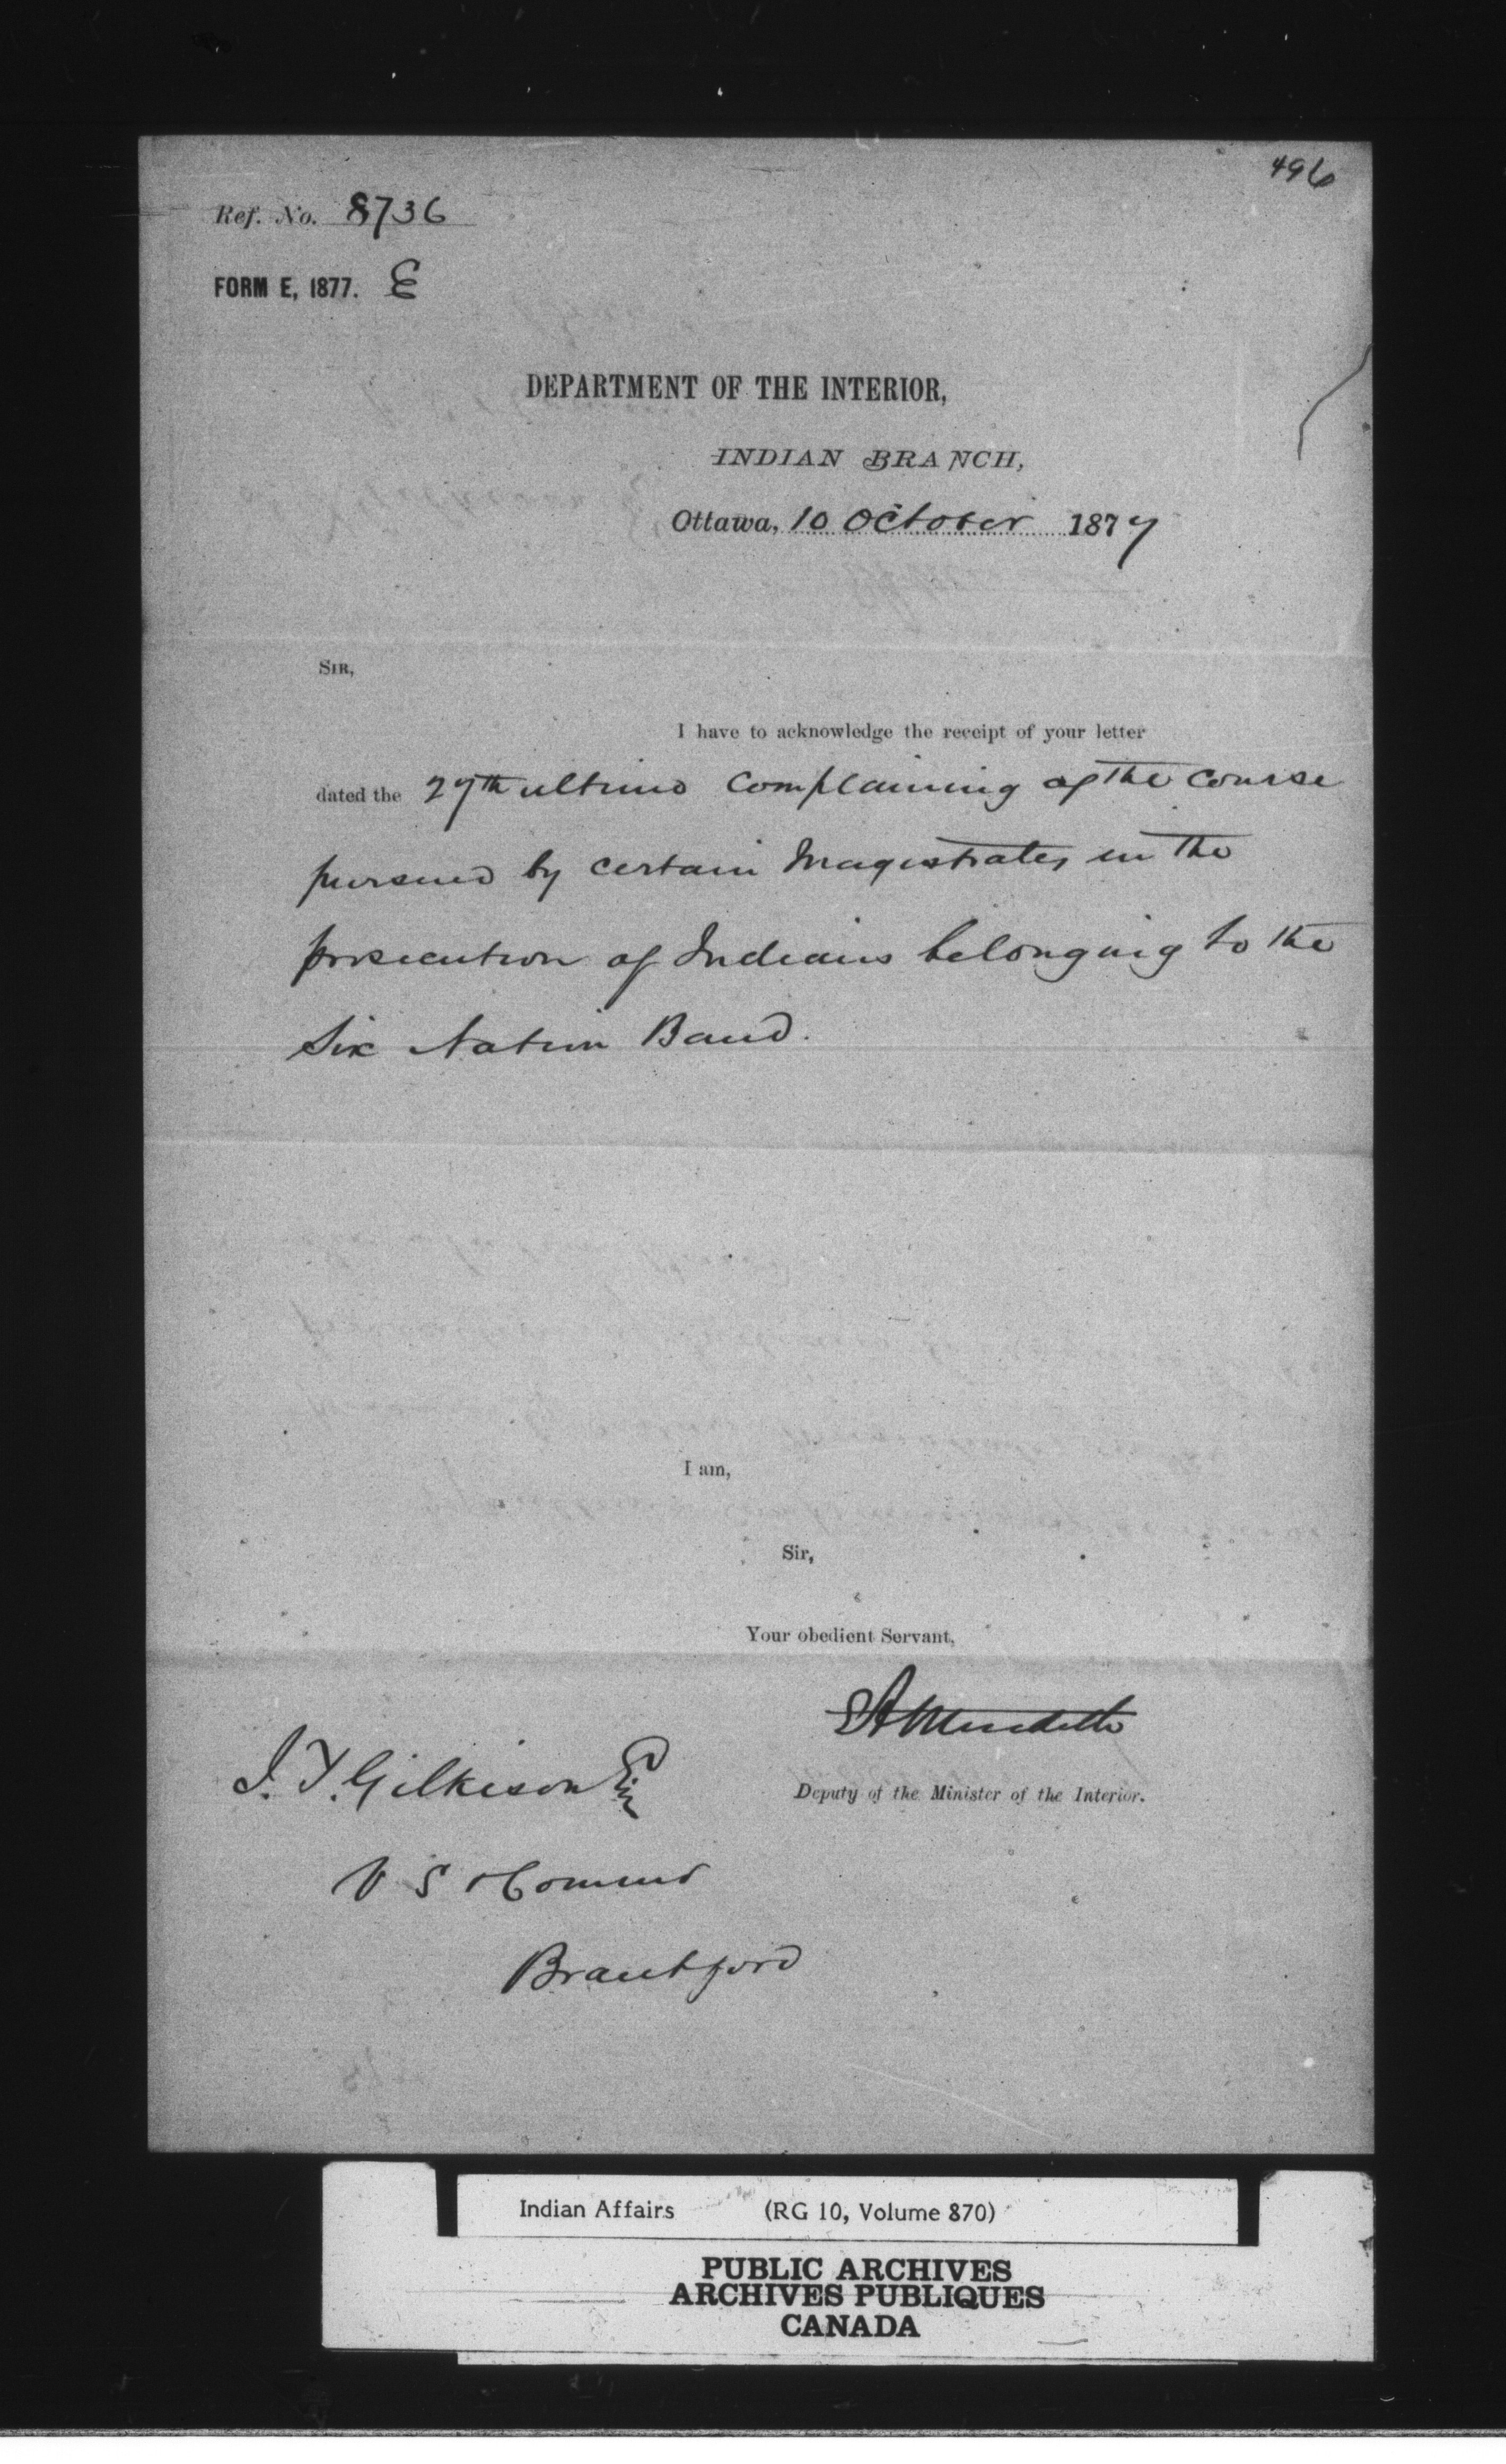 496
Ref. No. 8736
FORM E, 1877. E
DEPARTMENT OF THE INTERIOR,
INDIAN BRANCH,
Ottawa, 10 October 1877
SIR,
I have to acknowledge the receipt of your letter
dated the 27th ultimo complaining of the course
pursued by certain Magistrates in the
prosecution of Indians belonging to the
Six Nation Band.
I am,
Sir,
Your obedient Servant,
EA Meredith
Deputy of the Minister of the Interior.
J. T. Gilkison Esq
V S & Commr
Brantford
Indian Affairs (RG 10, Volume 870)
PUBLIC ARCHIVES
ARCHIVES PUBLIQUES
CANADA